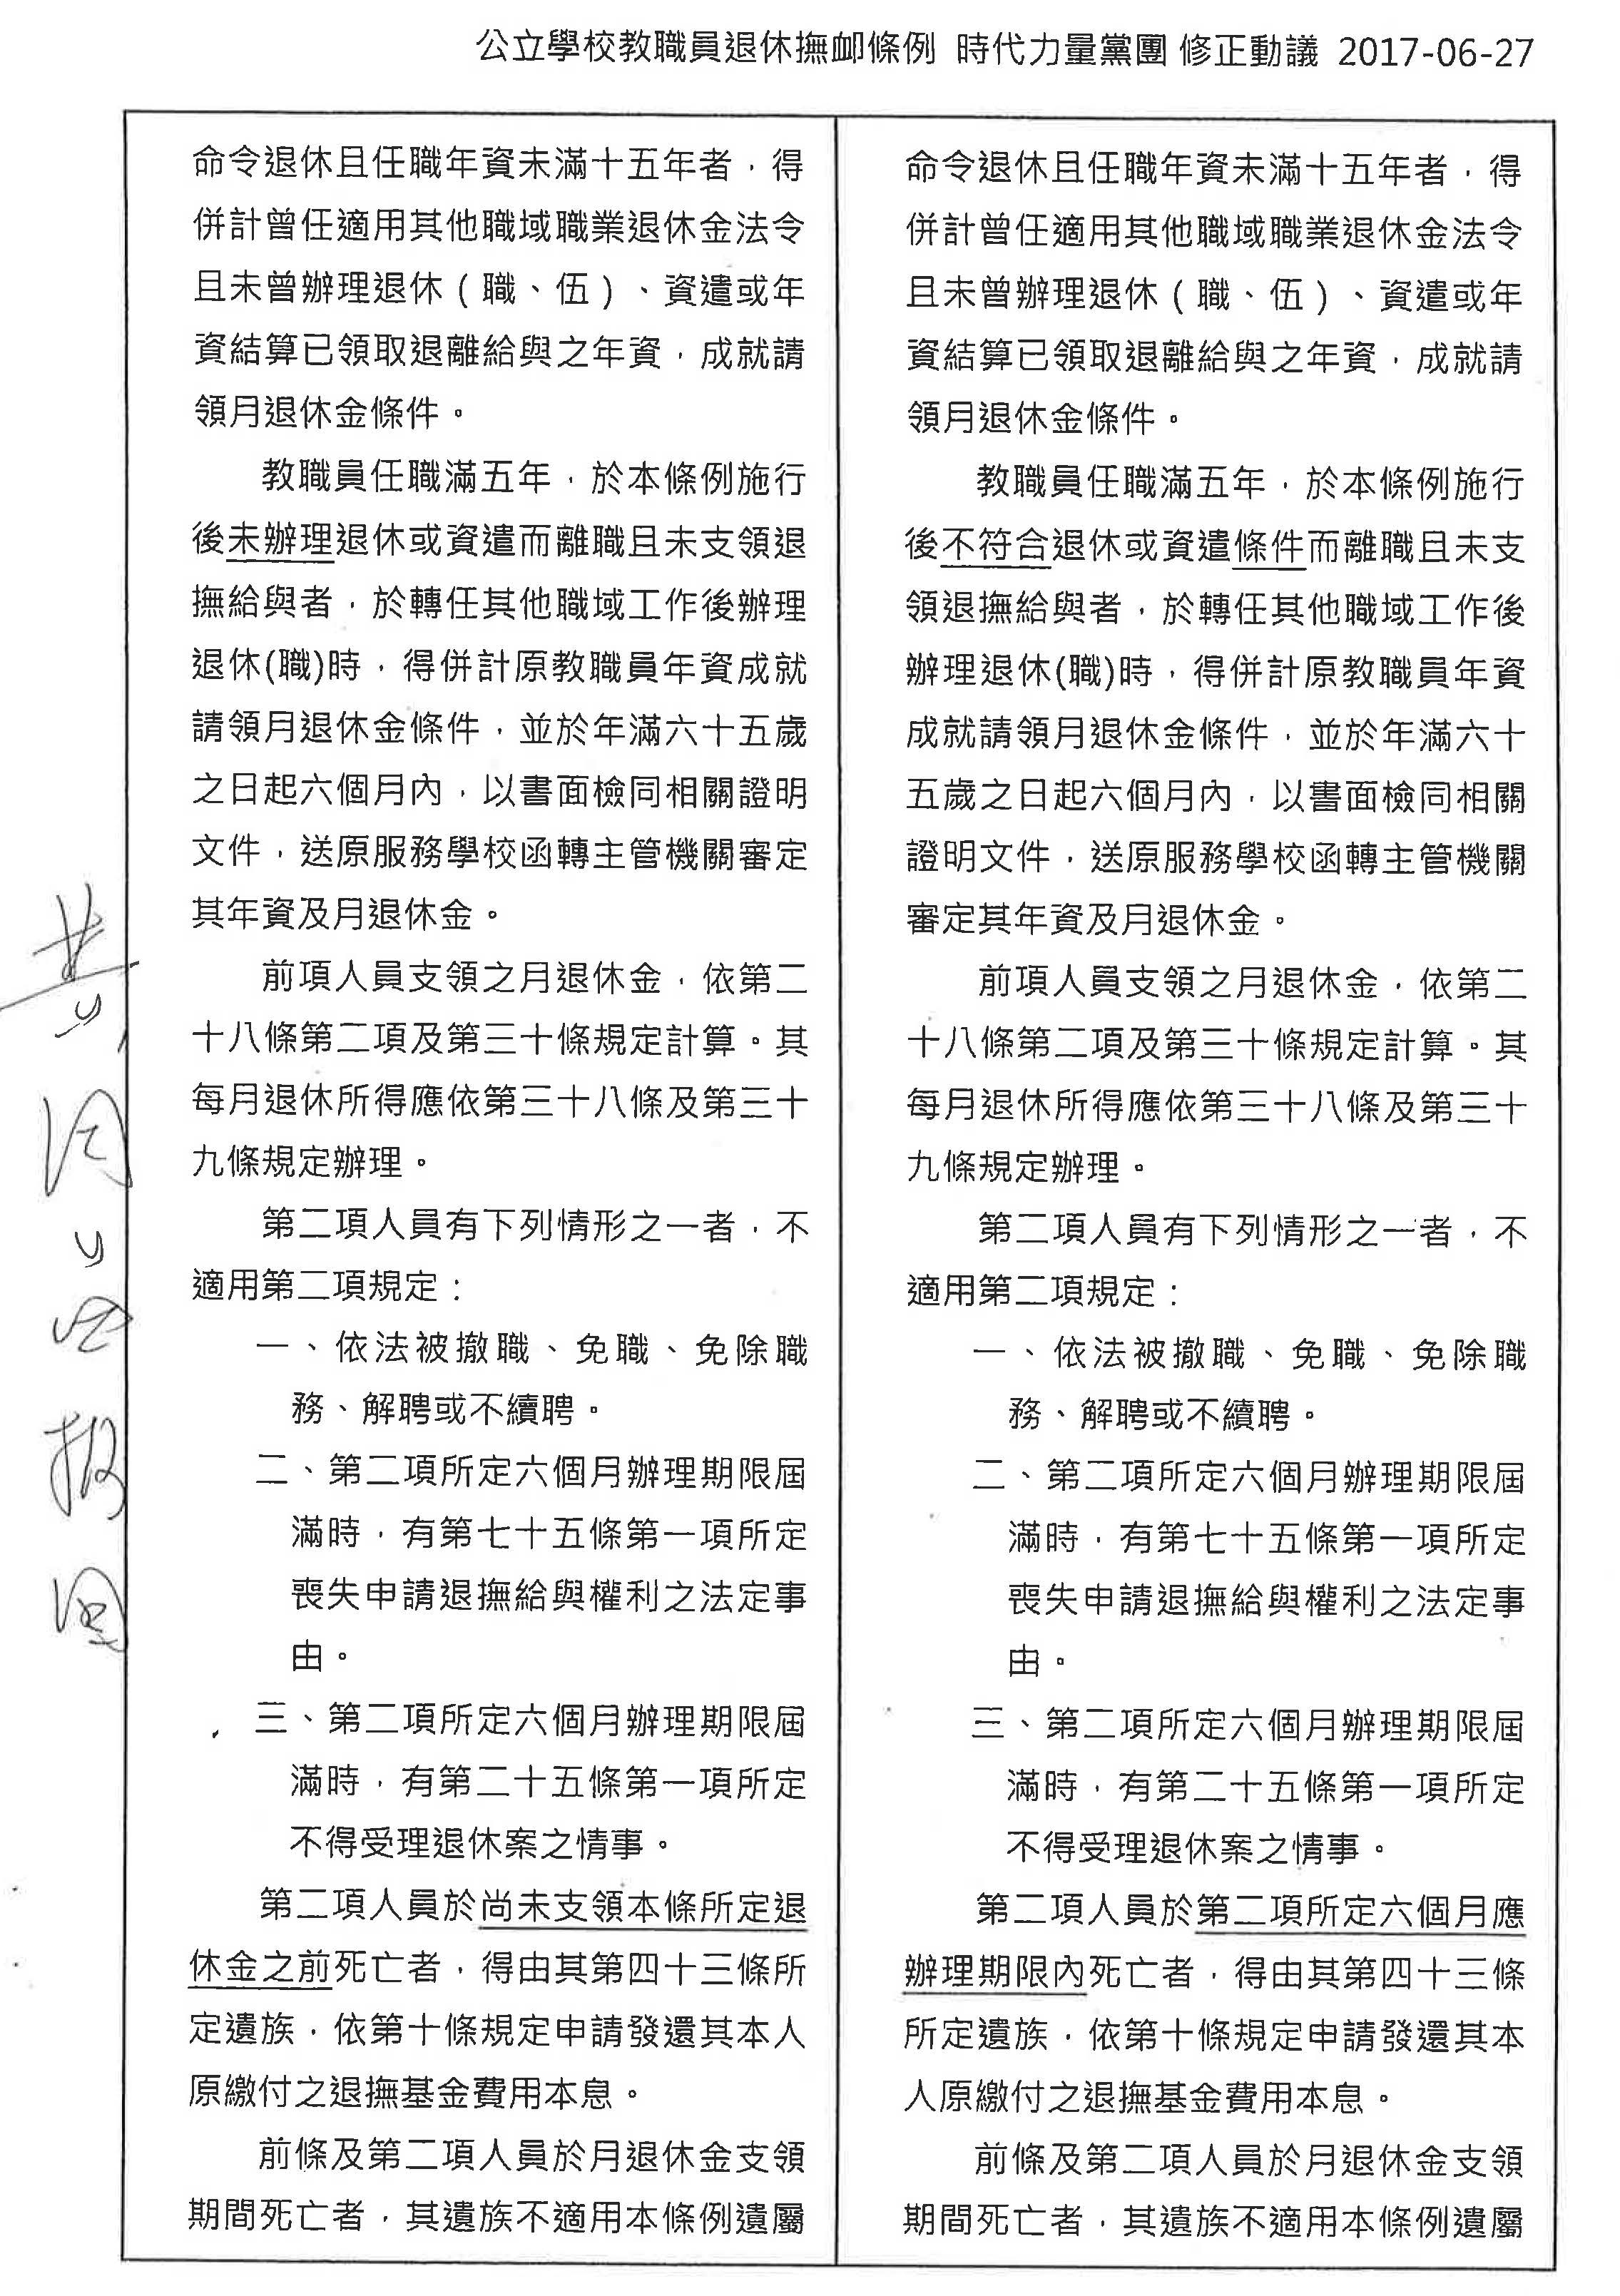 公立學校教職員退休撫卹條例 時代力量黨團 修正動議 2017-06-27
命令退休且任職年資未滿十五年者，得
併計曾任適用其他職域職業退休金法令
且未曾辦理退休（職、伍）、資遣或年
資結算已領取退離給與之年資，成就請
領月退休金條件。
教職員任職滿五年，於本條例施行
後未辦理退休或資遣而離職且未支領退
撫給與者，於轉任其他職域工作後辦理
退休(職)時，得併計原教職員年資成就
請領月退休金條件，並於年滿六十五歲
之日起六個月內，以書面檢同相關證明
文件，送原服務學校函轉主管機關審定
其年資及月退休金。
前項人員支領之月退休金，依第二
十八條第二項及第三十條規定計算。其
每月退休所得應依第三十八條及第三十
九條規定辦理。
第二項人員有下列情形之一者，不
適用第二項規定：
一、依法被撤職、免職、免除職
務、解聘或不續聘。
二、第二項所定六個月辦理期限屆
滿時，有第七十五條第一項所定
喪失申請退撫給與權利之法定事
由。
三、第二項所定六個月辦理期限屆
滿時，有第二十五條第一項所定
不得受理退休案之情事。
第二項人員於尚未支領本條所定退
休金之前死亡者，得由其第四十三條所
定遺族，依第十條規定申請發還其本人
原繳付之退撫基金費用本息。
前條及第二項人員於月退休金支領
期間死亡者，其遺族不適用本條例遺屬
命令退休且任職年資未滿十五年者，得
併計曾任適用其他職域職業退休金法令
且未曾辦理退休（職、伍）、資遣或年
資結算已領取退離給與之年資，成就請
領月退休金條件。
教職員任職滿五年，於本條例施行
後不符合退休或資遣條件而離職且未支
領退撫給與者，於轉任其他職域工作後
辦理退休(職)時，得併計原教職員年資
成就請領月退休金條件，並於年滿六十
五歲之日起六個月內，以書面檢同相關
證明文件，送原服務學校函轉主管機關
審定其年資及月退休金。
前項人員支領之月退休金，依第二
十八條第二項及第三十條規定計算。其
每月退休所得應依第三十八條及第三十
九條規定辦理。
第二項人員有下列情形之一者，不
適用第二項規定：
一、依法被撤職、免職、免除職
務、解聘或不續聘。
二、第二項所定六個月辦理期限屆
滿時，有第七十五條第一項所定
喪失申請退撫給與權利之法定事
由。
三、第二項所定六個月辦理期限屆
滿時，有第二十五條第一項所定
不得受理退休案之情事。
第二項人員於第二項所定六個月應
辦理期限內死亡者，得由其第四十三條
所定遺族，依第十條規定申請發還其本
人原繳付之退撫基金費用本息。
前條及第二項人員於月退休金支領
期間死亡者，其遺族不適用本條例遺屬